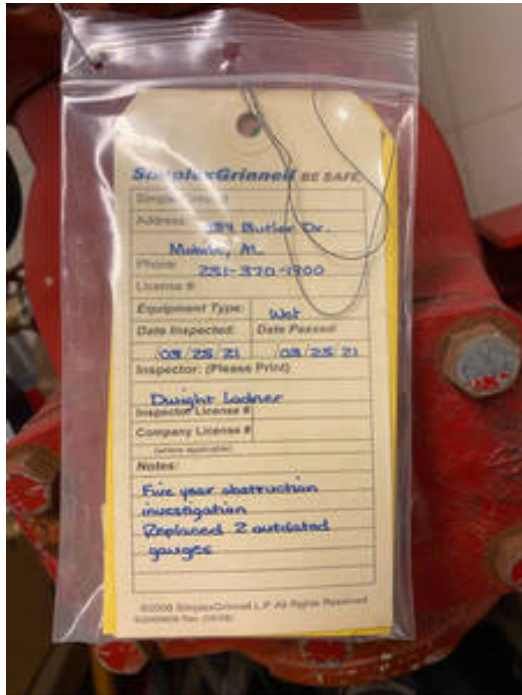 SimplexGrinnell BE SAFE
SimplexGrinnell
Address: Butler Dr.
Mobile, AL
Phone: 251-370-1900
License #:
Equipment Type: Wet
Date Inspected: Date Passed:
03/25/21 03/25/21
Inspector: (Please Print)
Dwight Ladner
Inspector License #
Company License #
(where applicable)
Notes:
Five year obstruction
investigation
Replaced 2 outdated
gauges
©2008 SimplexGrinnell L.P. All Rights Reserved